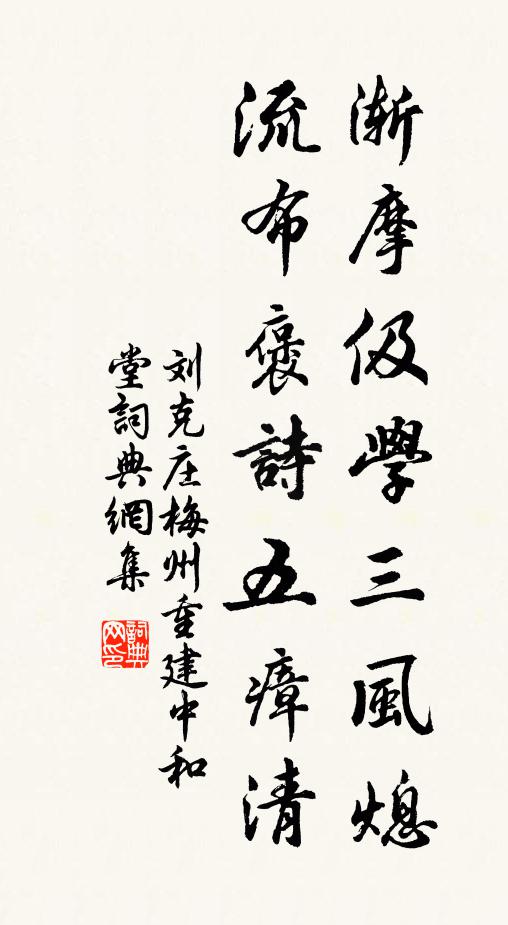 渐摩伋學三風熄
流布褒詩五瘴清
刘克庄梅州重建中和
堂詞典網集
詞典网印